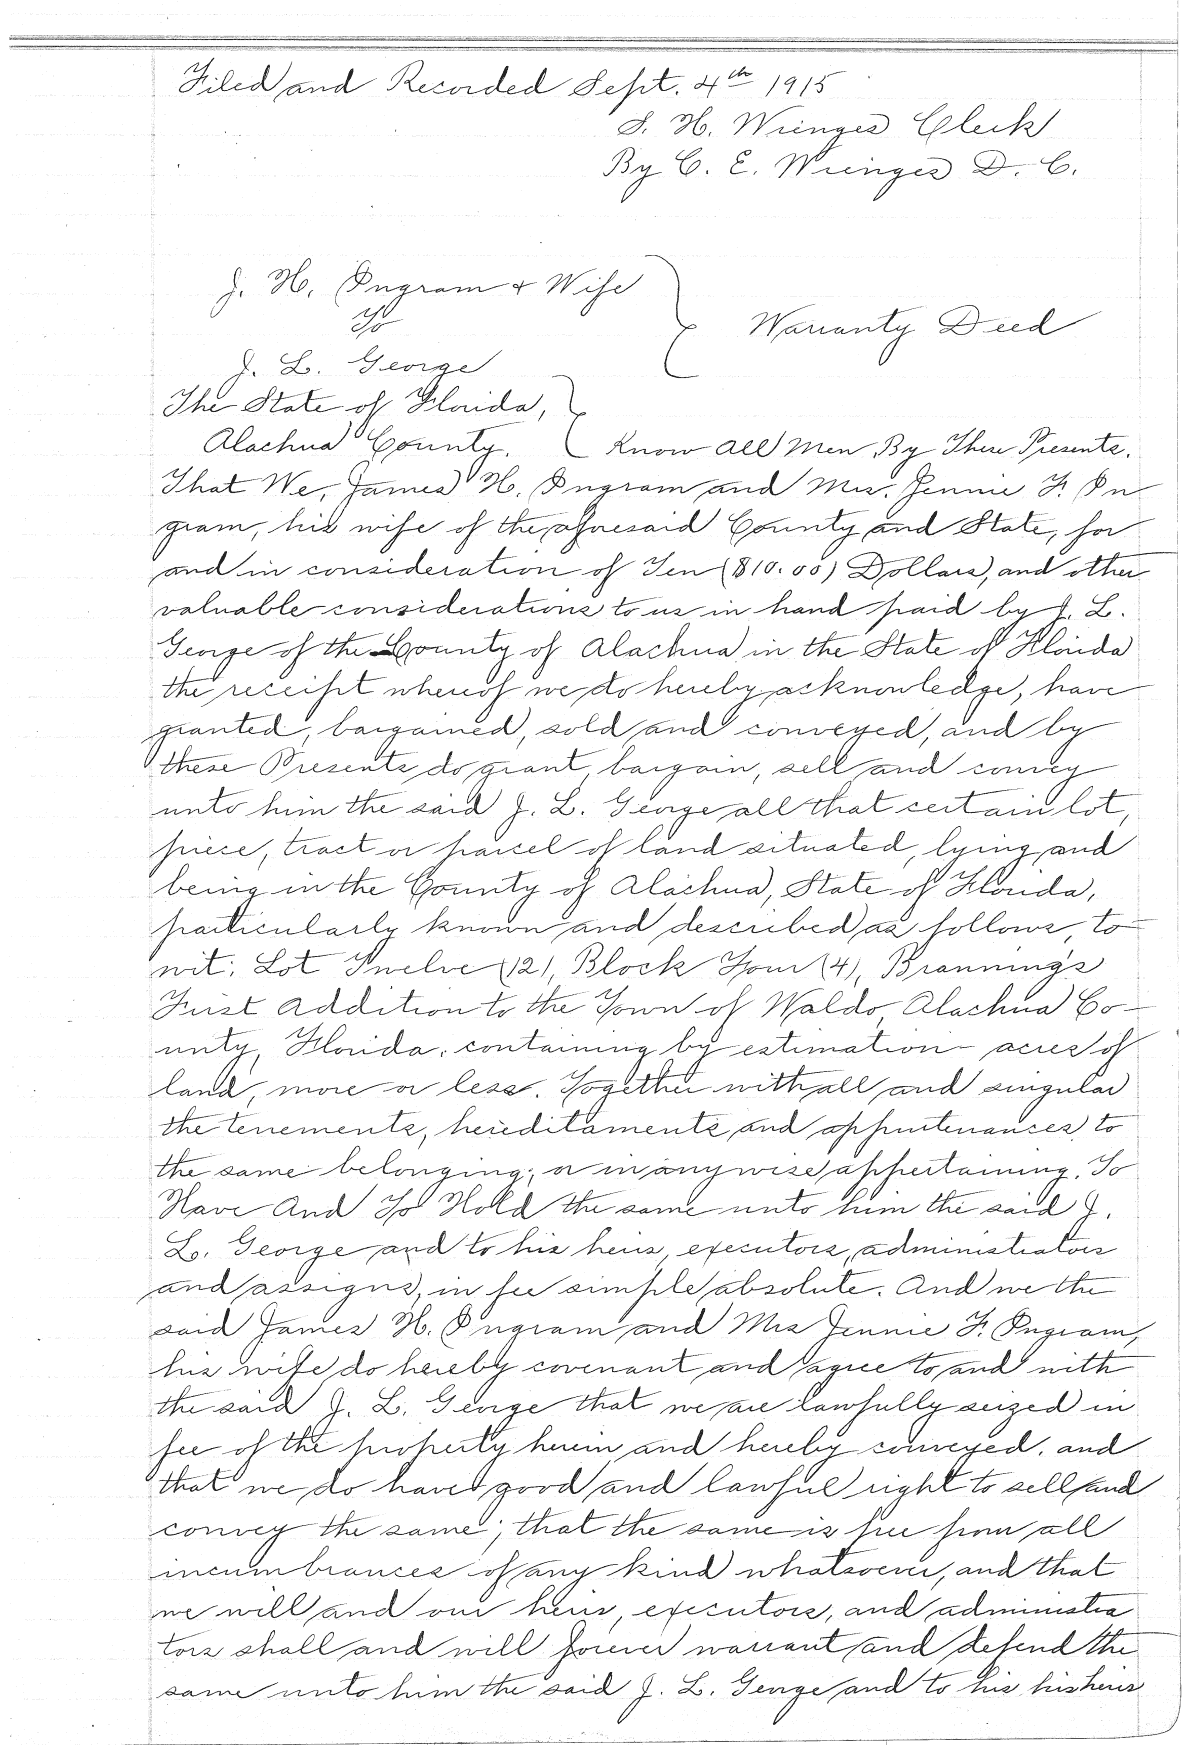 Filed and Recorded Sept. 4th 1915
S. H. Wienges Clerk
By C. E. Wienges D. C.
J. H. Ingram & Wife
To
Warranty Deed
J. L. George
The State of Florida,
Alachua County. Know All Men By These Presents.
That We, James H. Ingram and Mrs. Jennie F. In
gram, his wife of the aforesaid County and State, for
and in consideration of Ten ($10.00) Dollars, and other
valuable considerations to us in hand paid by J. L.
George of the County of Alachua in the State of Florida
the receipt whereof we do hereby acknowledge, have
granted, bargained, sold and conveyed, and by
these Presents do grant, bargain, sell and convey
unto him the said J. L. George all that certain lot,
piece, tract or parcel of land situated, lying and
being in the County of Alachua, State of Florida,
particularly known and described as follows, to
wit: Lot Twelve (12), Block Four (4), Branning's
First Addition to the Town of Waldo, Alachua Co-
unty, Florida, containing by estimation - acres of
land, more or less. Together with all and singular
the tenements, hereditaments and appurtenances, to
the same belonging; or in anywise appertaining. To
Have And To Hold the same unto him the said J.
L. George and to his heirs, executors, administrators
and assigns, in fee simple absolute. And we the
said James H. Ingram and Mrs Jennie F. Ingram,
his wife do hereby covenant and agree to and with
the said J. L. George that we are lawfully seized in
fee of the property herein and hereby conveyed, and
that we do have good and lawful right to sell and
convey the same; that the same is free from all
incumbrances of any kind whatsoever, and that
we will and our heirs, executors, and administra
tors shall and will forever warrant and defend the
same unto him the said J. L. George and to his his heirs